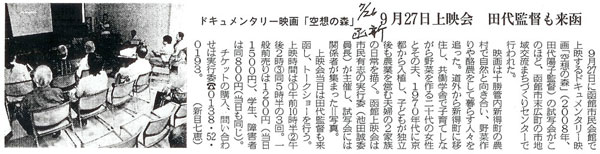 7/26
函新
ドキュメンタリー映画「空想の森」
9月27日上映会 田代監督も来函
9月27日に函館市民会館で
上映するドキュメンタリー映
画「空想の森」(2008年、
田代陽子監督)の試写会がこ
のほど、函館市末広町の市地
域交流まちづくりセンターで
行われた。
映画は十勝管内新得町の農
村で自然と向き合い、野菜作
りや酪農をして暮らす人々を
追った。道外から新得町に移
住し、共働学舎で子育てしな
がら野菜を作る三十代の女性
とその夫、1970年代に京
都から入植し、子どもが独立
後も農業を営む夫婦の2家族
の日常を描く。函館上映会は
市民有志の実行委(池田誠委
員長)が主催し、試写会には
関係者が集まった=写真。
上映会当日は田代監督も来
函し、トークショーを行う。
上映時間は①午前11時半②午
後2時③同5時半の3回。
一般前売りは1200円(当日
1500円)、学生、障害者
は同800円(当日も同じ)。
チケットの購入、問い合わ
せは実行委☎0138・52・
0193。
(新目七恵)